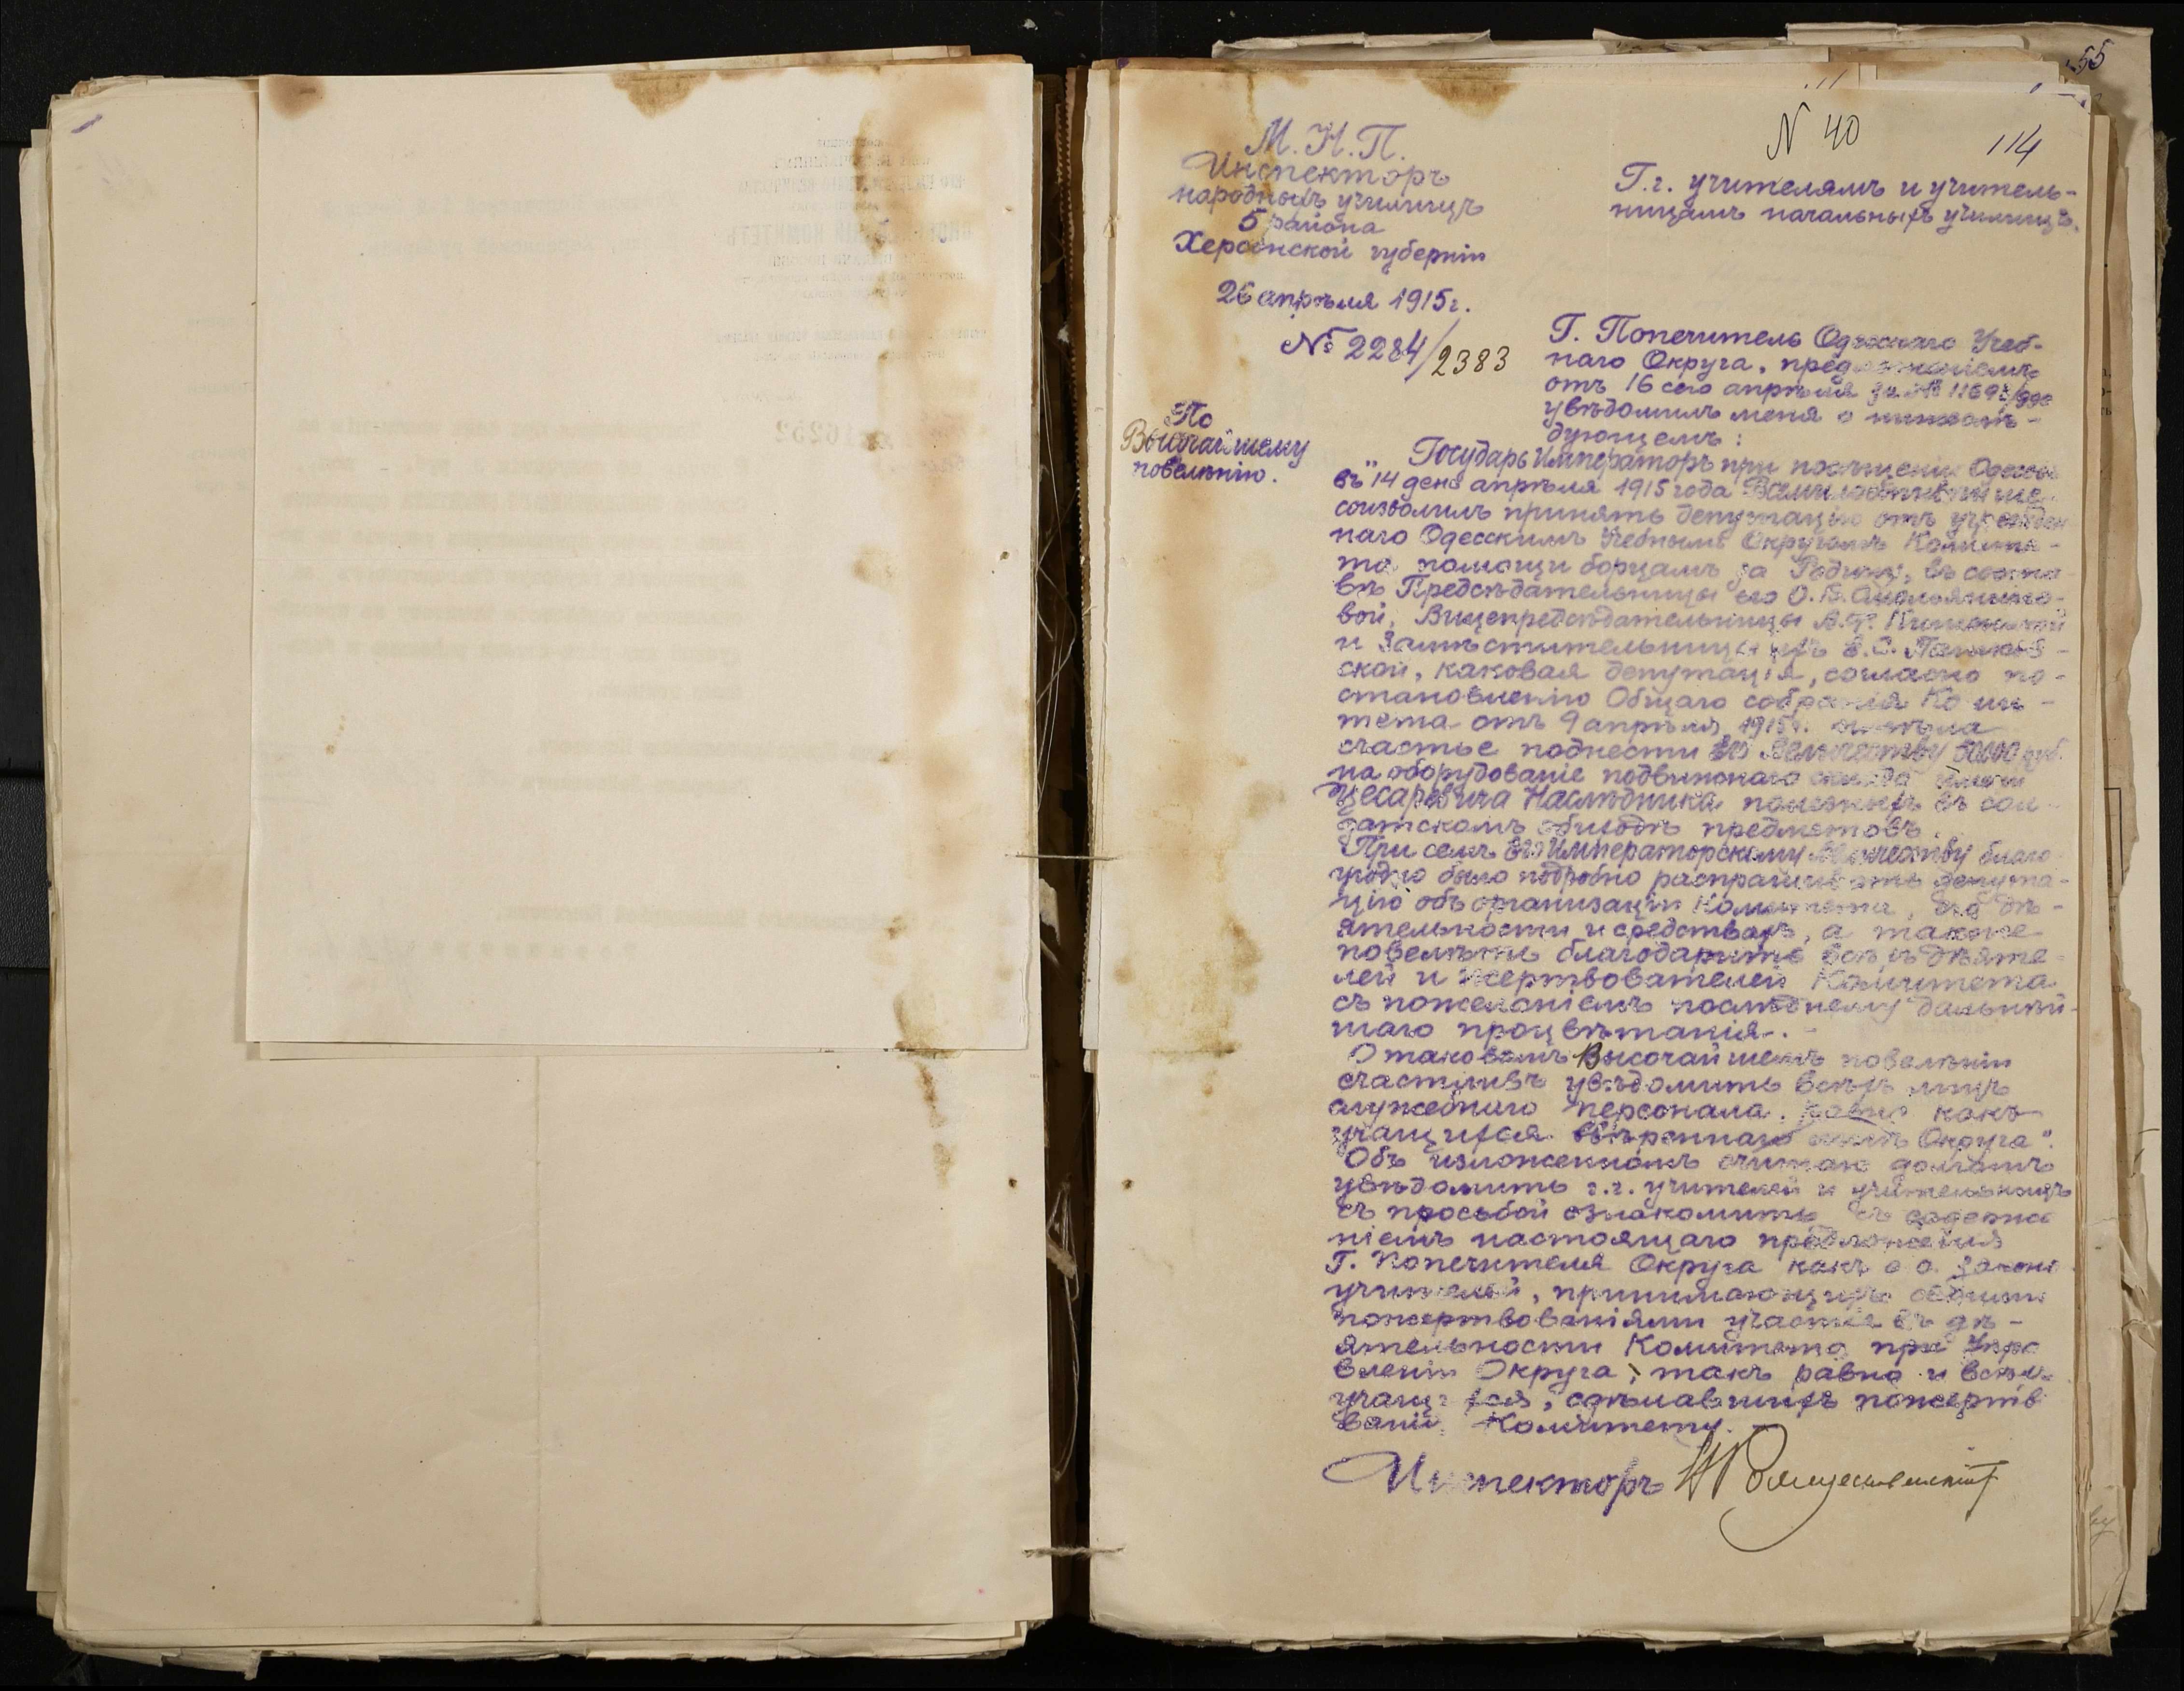 55
N 40
114
М. Н. П.
Инспекторъ
народныхъ училищъ
5 района
Херсонской губерніи
26 апрѣля 1915 г.
№ 2284/2383
По
Высочайшему
повелѣнію.
Г.г. учителямъ и учитель-
ницамъ начальныхъ училищъ.
Г. Попечитель Одесскаго Учеб-
наго Округа, предложеніемъ
отъ 16 сего апрѣля за №
увѣдомилъ меня о нижеслѣ-
дующемъ:
„Государь Императоръ при посѣщеніи Одессы
въ 14 день апрѣля 1915 года Всемилостивѣйше
соизволилъ принять депутацію отъ учрежден
наго Одесскимъ Учебнымъ Округомъ Комите-
та помощи борцамъ за Родину, въ соста-
вѣ Предсѣдательницы его О. В.
вой, Вицепредсѣдательницы А. Ѳ.
и Замѣстительницы ихъ
ской, каковая депутація, согласно по-
становленію Общаго собранія Коми-
тета отъ 9 апрѣля 1915 г. имѣла
счастье поднести Его Величеству 50000 руб.
на оборудованіе подвижнаго склада имени
Цесаревича Наслѣдника полезныхъ въ сол-
датскомъ обиходѣ предметовъ.
При семъ Его Императорскому Величеству благо
угодно было подробно распрашивать депута-
цію объ организаціи Комитета, его дѣ-
ятельности и средствахъ, а также
повелѣть благодарить всѣхъ дѣяте-
лей и жертвователей Комитета
съ пожеланіемъ послѣднему дальнѣй-
шаго процвѣтанія.-
О таковомъ Высочайшемъ повелѣніи
счастливъ увѣдомить всѣхъ лицъ
служебнаго персонала, равно какъ
учащихся ввѣреннаго мнѣ Округа“.
Объ изложенномъ считаю долгомъ
увѣдомить г.г. учителей и учительницъ
съ просьбой ознакомить съ содержа
ніемъ настоящаго предложенія
Г. Попечителя Округа какъ о.о. законо
учителей, принимающихъ своими
пожертвованіями участіе въ дѣ-
ятельности Комитета при Упра
вленіи Округа, такъ равно и всѣхъ
учащихся, сдѣлавшихъ пожертв
ваній Комитету.
Инспекторъ